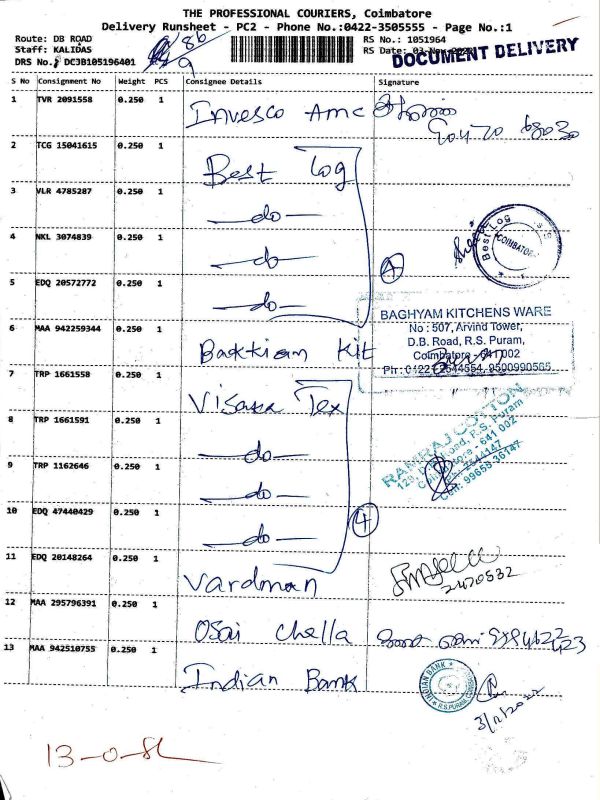 THE PROFESSIONAL COURIERS, Coimbatore
Delivery Runsheet - PC2 - Phone No.:0422-3505555 - Page No.:1
Route: DB ROAD
RS No.: 1051964
Staff: KALIDAS
RS Date: 03-Nov
DRS No.: DCJB105196401
DOCUMENT DELIVERY
S No Consignment No Weight PCS Consignee Details Signature
1 TVR 2091558 0.250 1 Invesco Amc
2 TCG 15041615 0.250 1 Best Log
3 VLR 4785287 0.250 1 —do—
4 NKL 3074839 0.250 1 —do—
5 EDQ 20572772 0.250 1 —do—
Best Log
COIMBATORE
6 MAA 942259344 0.250 1 Bakkiam Kit
BAGHYAM KITCHENS WARE
No : 507, Arvind Tower,
D.B. Road, R.S. Puram,
Coimbatore - 641 002
Ph : 0422 - 2544554, 9500990565
7 TRP 1661558 0.250 1 Visaka Tex
8 TRP 1661591 0.250 1 —do—
9 TRP 1162646 0.250 1 —do—
10 EDQ 47440429 0.250 1 —do—
4
RAMRAJ COTTON
Road, R.S. Puram
Coimbatore - 641 002
Cell: 99658 36147
11 EDQ 20148264 0.250 1 Vardman
2470532
12 MAA 295796391 0.250 1 Osai Chella
13 MAA 942510755 0.250 1 Indian Bank
INDIAN BANK
R.S. PURAM
3/11/2022
13-0-